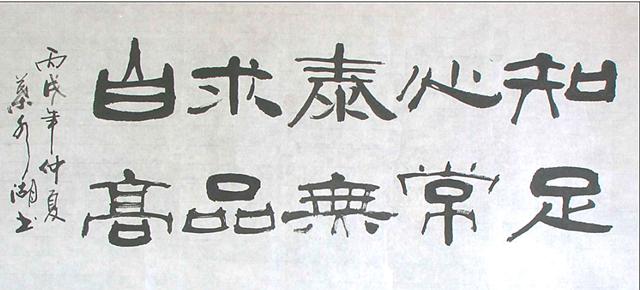 知足
心常
泰無
求品
自高
丙戌年仲夏
湖书